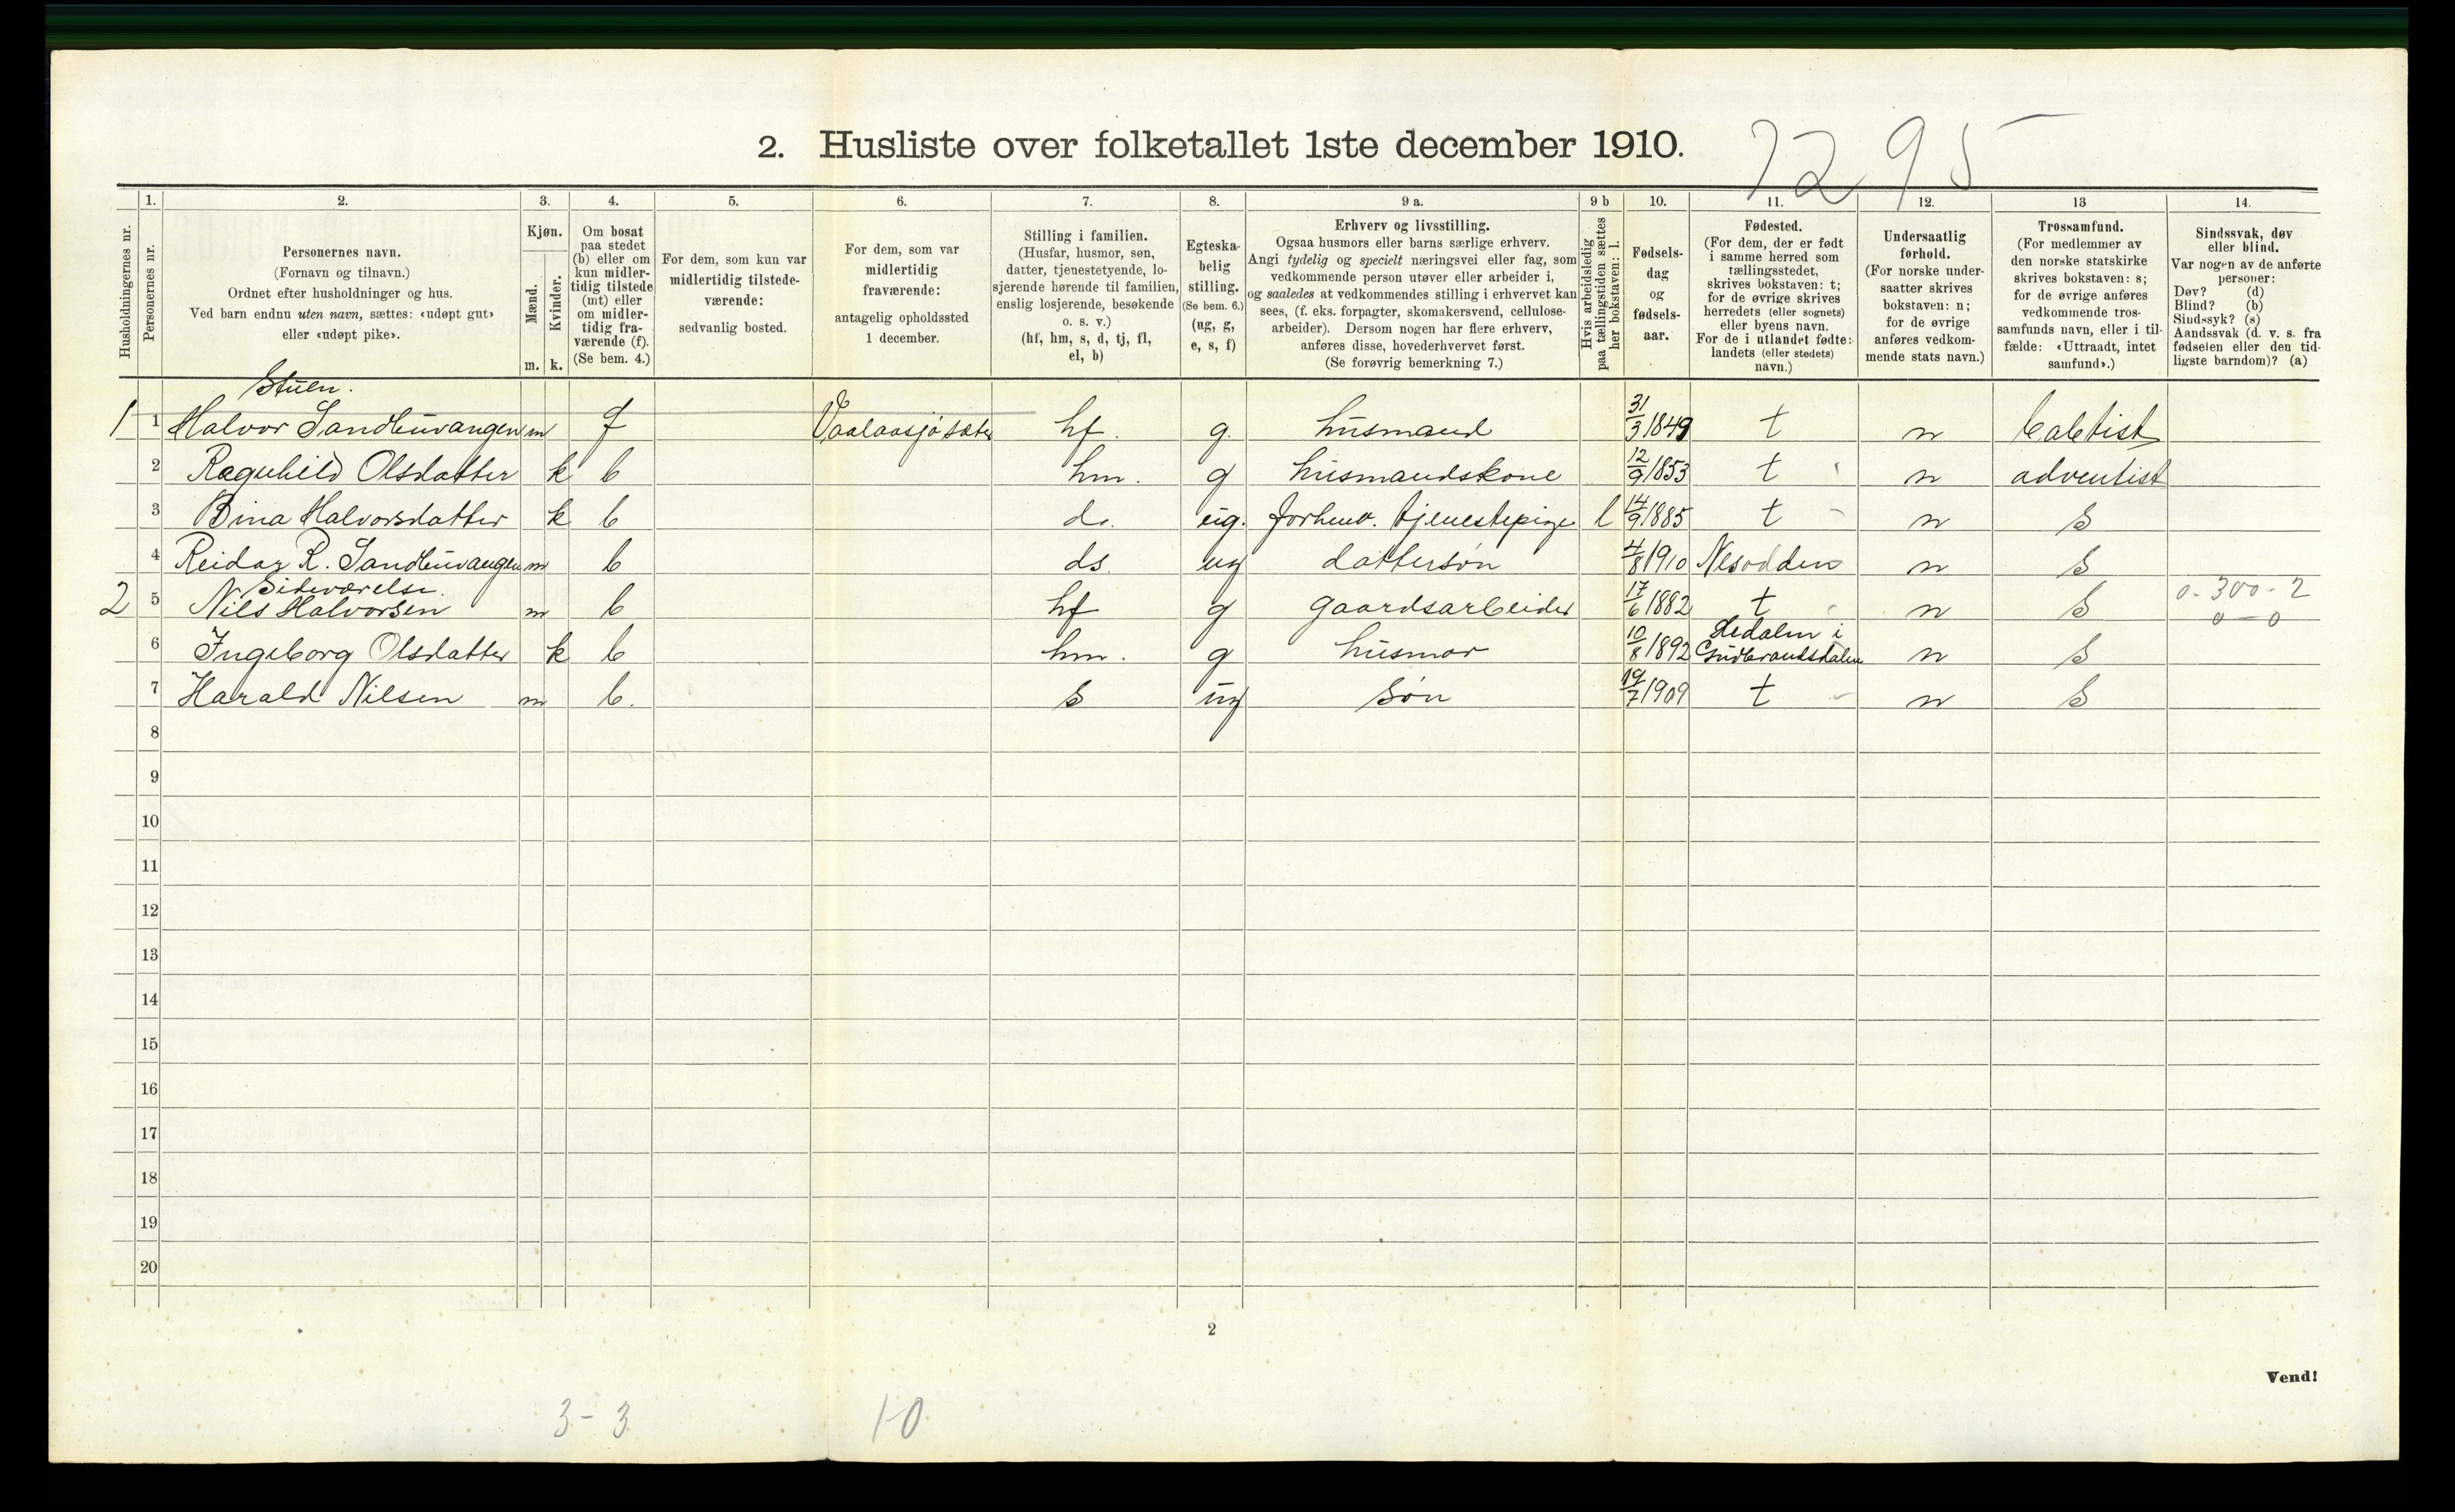 2. Husliste over folketallet 1ste december 1910.
7295
Husholdningernes nr.
1.
Personernes nr.
2.
Personernes navn.
(Fornavn og tilnavn.)
Ordnet efter husholdninger og hus.
Ved barn endnu uten navn, sættes: «udøpt gut»
eller «udøpt pike».
3.
Kjøn.
Mænd.
Kvinder.
m. k.
4.
Om bosat
paa stedet
(b) eller om
kun midler-
tidig tilstede
(mt) eller
om midler-
tidig fra-
værende (f).
(Se bem. 4.)
5.
For dem, som kun var
midlertidig tilstede-
værende:
sedvanlig bosted.
6.
For dem, som var
midlertidig
fraværende:
antagelig opholdssted
1 december.
7.
Stilling i familien.
(Husfar, husmor, søn,
datter, tjenestetyende, lo-
sjerende hørende til familien,
enslig losjerende, besøkende
o. s. v.)
(hf, hm, s, d, tj, fl,
el, b)
8.
Egteska-
belig
stilling.
(Se bem. 6.)
(ug, g,
e, s, f)
9 a.
Erhverv og livsstilling.
Ogsaa husmors eller barns særlige erhverv.
Angi tydelig og specielt næringsvei eller fag, som
vedkommende person utøver eller arbeider i,
og saaledes at vedkommendes stilling i erhvervet kan
sees, (f. eks. forpagter, skomakersvend, cellulose-
arbeider). Dersom nogen har flere erhverv,
anføres disse, hovederhvervet først.
(Se forøvrig bemerkning 7.)
9 b
Hvis arbeidsledig
paa tællingstiden sættes
her bokstaven: l.
10.
Fødsels-
dag
og
fødsels-
aar.
11.
Fødested.
(For dem, der er født
i samme herred som
tællingsstedet,
skrives bokstaven: t;
for de øvrige skrives
herredets (eller sognets)
eller byens navn.
For de i utlandet fødte:
landets (eller stedets)
navn.)
12.
Undersaatlig
forhold.
(For norske under-
saatter skrives
bokstaven: n;
for de øvrige
anføres vedkom-
mende stats navn.)
13
Trossamfund.
(For medlemmer av
den norske statskirke
skrives bokstaven: s;
for de øvrige anføres
vedkommende tros-
samfunds navn, eller i til-
fælde: «Uttraadt, intet
samfund».)
14.
Sindssvak, døv
eller blind.
Var nogen av de anførte
personer:
Døv? (d)
Blind? (b)
Sindssyk? (s)
Aandssvak (d. v. s. fra
fødselen eller den tid-
ligste barndom)? (a)
Stuen.
1 1 Halvor Sandbuvangen m f Vaalaasjøsæter hf. g. husmand 31/3 1849 t n babtist
2 Ragnhild Olsdatter k b hm. g husmandskone 12/9 1853 t n adventist
3 Bina Halvorsdatter k b d. ug. forhenv. tjenestepige l 14/9 1885 t n s
4 Reidar R. Sandbuvangen m b ds. ug dattersøn 4/8 1910 Nesodden n s
Sideværelse.
2 5 Nils Halvorsen m b hf g gaardsarbeider 17/6 1882 t n s 0-300-2
0-0
6 Ingeborg Olsdatter k b hm. g husmor 10/8 1892 Hedalen i Gudbrandsdalen n s
7 Harald Nilsen m b. s ug søn 19/7 1909 t n s
8
9
10
11
12
13
14
15
16
17
18
19
20
2
Vend!
3-3 10